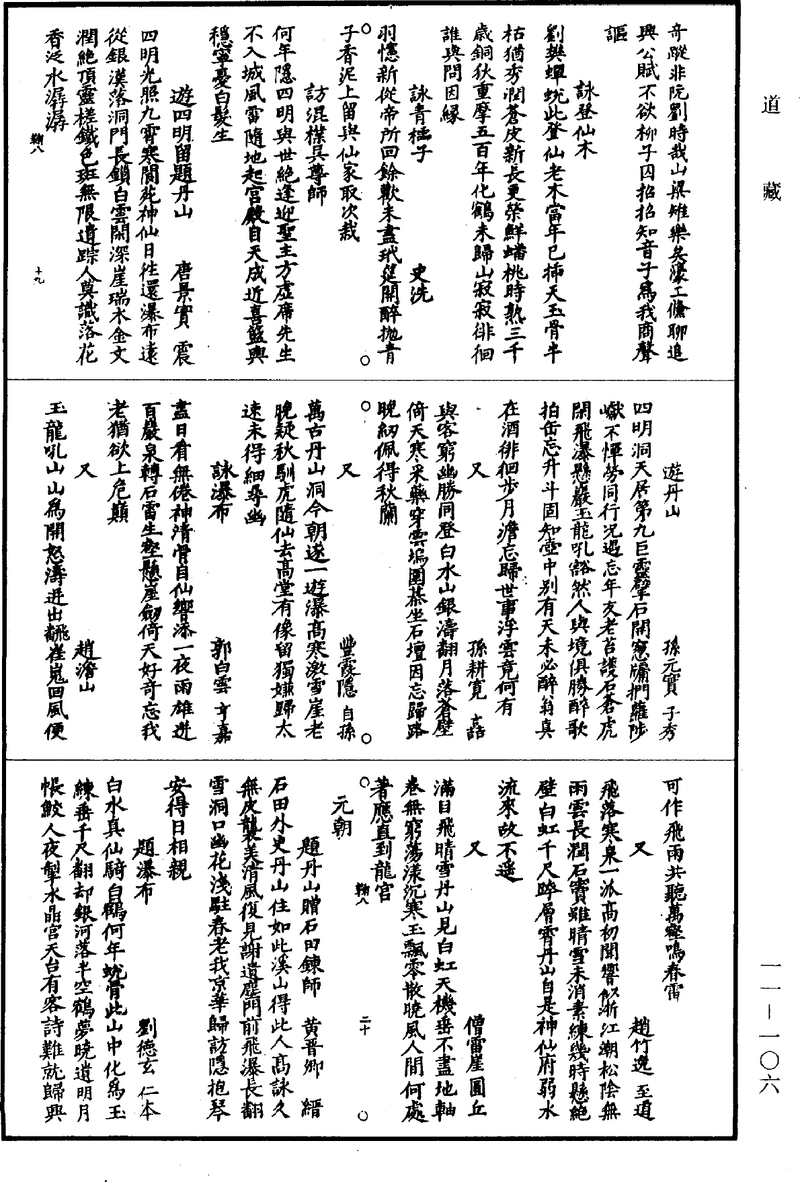 道藏
奇蹤非阮劉時哉山梁雉樂矣濠工鯈聊追
興公賦不欲柳子囚招招知音子爲我商聲
謳
詠登仙木
劉樊蟬蛻此登仙老木當年已揷天玉骨半
枯猶秀潤蒼皮新長更榮鮮蟠桃時熟三千
歳銅狄重摩五百年化鶴未歸山寂寂徘徊
誰與問因緣
詠青櫺子 史洗
羽幰新從帝所回餘歡未盡玳筵開醉抛青
子香泥上留與仙家取次栽
訪混樸吴尊師
何年隱四明與世絶逢迎聖主方虛席先生
不入城風雷隨地起宮殿自天成近喜籃輿
穩寧憂白髮生
遊四明留題丹山 唐景實 震
四明光照九霄寒閬苑神仙日往還瀑布遠
從銀漢落洞門長鎖白雲閑深崖瑞木金文
潤絶頂靈槎鐵色斑無限遺踪人莫識落花
香泛水潺潺
鞠八 十九
遊丹山 孫元實 子秀
四明洞天居第九巨靈擘石開窻牖捫蘿陟
巘不憚勞同行况遇忘年友老苔護石蒼虎
閑飛瀑懸巖玉龍吼豁然人與境俱勝醉歌
拍缶忘升斗固知壺中别有天未必醉翁真
在酒徘徊步月澹忘歸世事浮雲竟何有
又 孫耕寬 嚞
與客窮幽勝同登白水山銀濤翻月落蒼壁
倚天寒采藥穿雲塢圍棊坐石壇因忘歸路
晚紉佩得秋蘭
又 豐霞隱 自孫
萬古丹山洞今朝遂一遊瀑高寒激雪崖老
晚疑秋馴虎隨仙去高堂有像留獨嫌歸太
速未得細尋幽
詠瀑布 郭白雲 亨嘉
盡日看無倦神清骨自仙響添一夜雨雄迸
百巖泉轉石雷生壑懸崖劒倚天好奇忘我
老猶欲上危巔
又 趙澹山
玉龍吼山山爲開怒濤迸出飜崔嵬回風便
可作飛雨共聽萬壑鳴春雷
又 趙竹逸 至道
飛落寒泉一派高初聞響似浙江潮松陰無
雨雲長潤石竇雖晴雪未消素練幾時懸絶
壁白虹千尺跨層霄丹山自是神仙府弱水
流來故不遥
又 僧雷崖 圓丘
滿目飛晴雪丹山見白虹天機垂不盡地軸
卷無窮蕩漾沉寒玉飄零散曉風人間何處
著應直到龍宮
鞠八 二十
元朝
題丹山贈石田鍊師 黄晋卿 縉
石田外史丹山住如此溪山得此人髙詠久
無皮襲美清風復見謝遺塵門前飛瀑長翻
雪洞口幽花淺駐春老我京華歸訪隱抱琴
安得日相親
題瀑布 劉德玄 仁本
白水真仙騎白鶴何年蛻骨此山中化爲玉
練垂千尺翻却銀河落半空鶴夢曉遺明月
帳鮫人夜掣水晶宮天台有客詩難就歸興
一一—一〇六